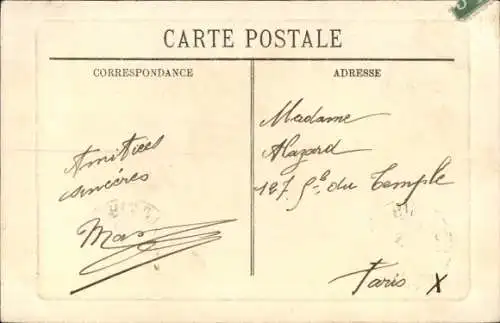 CARTE POSTALE
CORRESPONDANCE
ADRESSE
Amitiées
sincères
Max
Madame
Alazard
127 Fg du Temple
Paris X